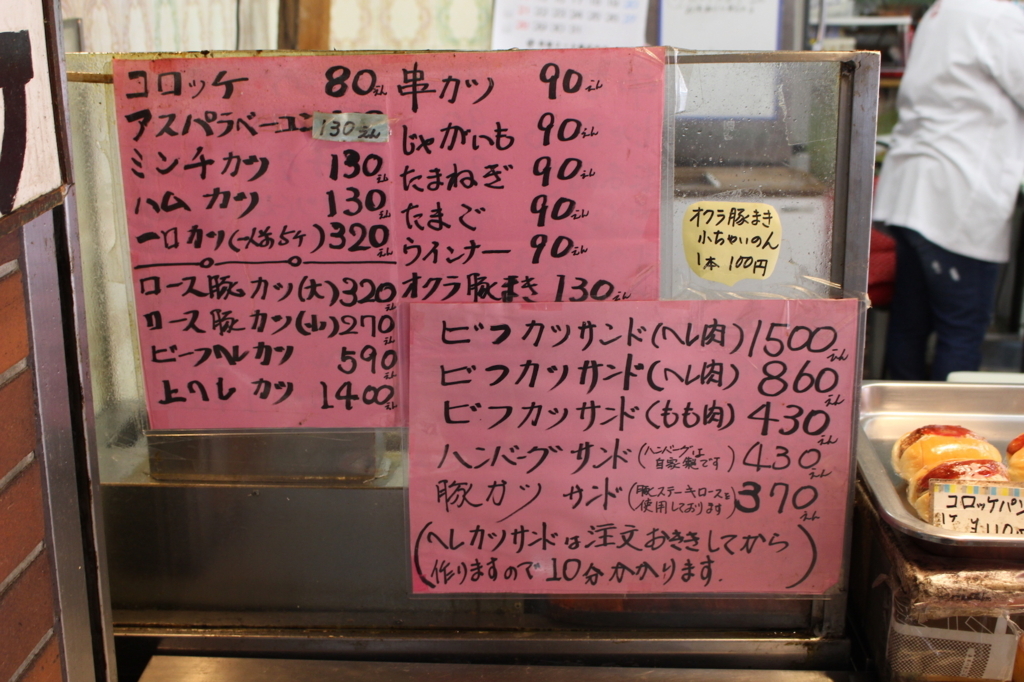 コロッケ 80えん
アスパラベーコン 130えん
ミンチカツ 130えん
ハムカツ 130えん
一口カツ(一人前5ケ) 320えん
ロース豚カツ(大) 320えん
ロース豚カツ(小) 270えん
ビーフヘレカツ 590えん
上ヘレカツ 1400えん
串カツ 90えん
じゃがいも 90えん
たまねぎ 90えん
たまご 90えん
ウインナー 90えん
オクラ豚まき 130えん
オクラ豚まき
小ちゃいのん
1本 100円
ビフカツサンド(ヘレ肉) 1500えん
ビフカツサンド(ヘレ肉) 860えん
ビフカツサンド(もも肉) 430えん
ハンバーグサンド(ハンバーグは自家製です) 430えん
豚カツサンド(豚ステーキロースを使用しております) 370えん
(ヘレカツサンドは注文おききしてから
作りますので10分かかります.)
コロッケパン